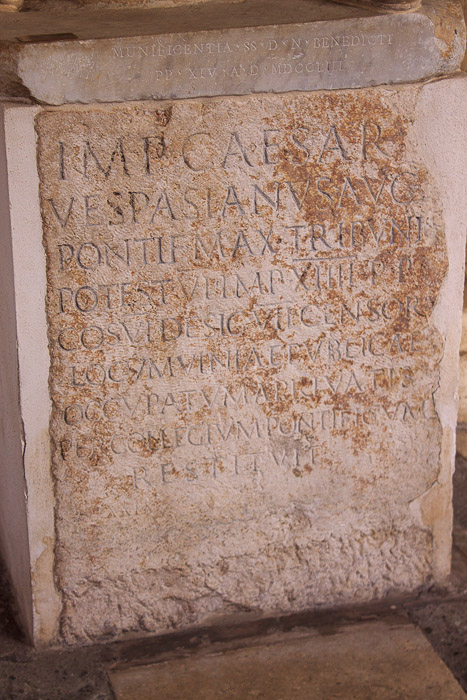 MUNIFICENTIA · SS · D · N · BENEDICTI
PP · XIV · A · D · MDCCLIII
IMP CAESAR
VESPASIANVS AVG
PONTIF MAX TRIBVNIC
POTEST VI IMP XIIII P P
COS VI DESIG VII CENSOR
LOCVM VINIAE PVBLICAE
OCCVPATVM A PRIVATIS
PER COLLEGIVM PONTIFICVM
RESTITVIT